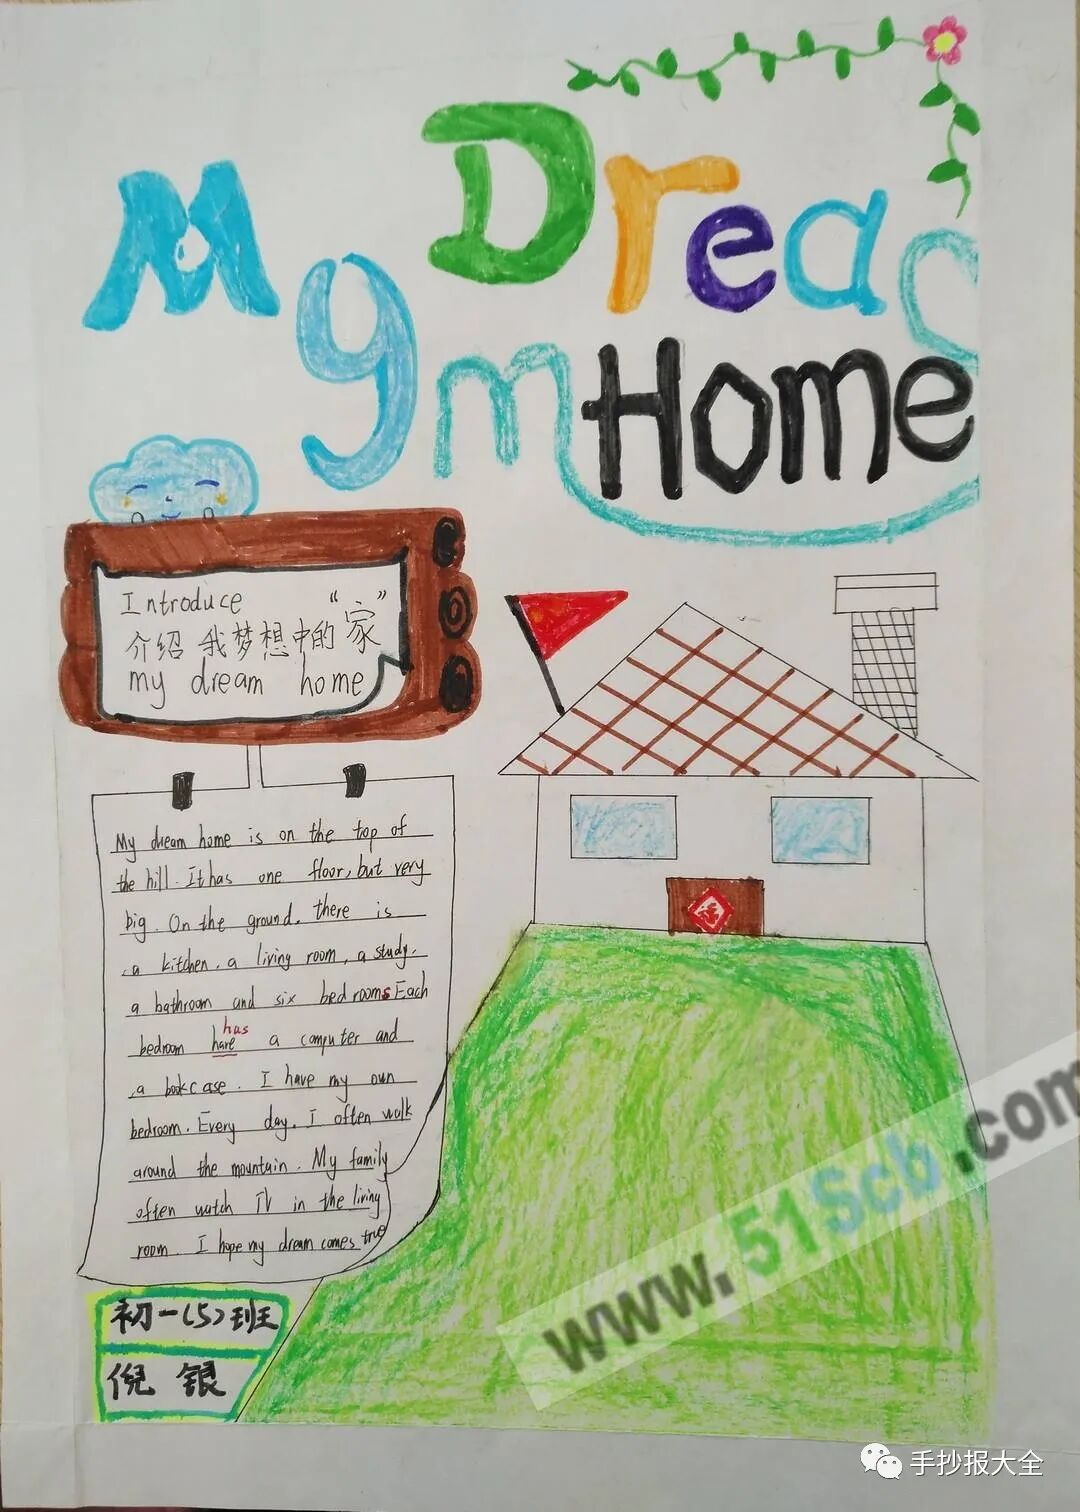 My Drea
m Home
Introduce "家"
介绍 我梦想中的
my dream home
My dream home is on the top of
the hill. It has one floor, but very
big. On the ground, there is
a kitchen, a living room, a study,
a bathroom and six bedrooms Each
has
bedroom have a computer and
a bookcase. I have my own
bedroom. Every day, I often walk
around the mountain. My family
often watch TV in the living
room. I hope my dream comes true
福
初一(5)班
倪银
www.51Scb.com
手抄报大全